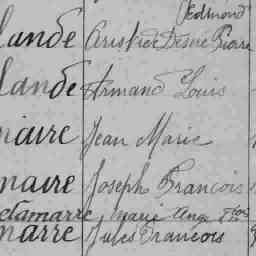 Edmond
lande Aristide Désiré Pierre
lande Armand Louis
maire Jean Marie
maire Joseph François
Delamarre, Marie Ange
marre Jules François